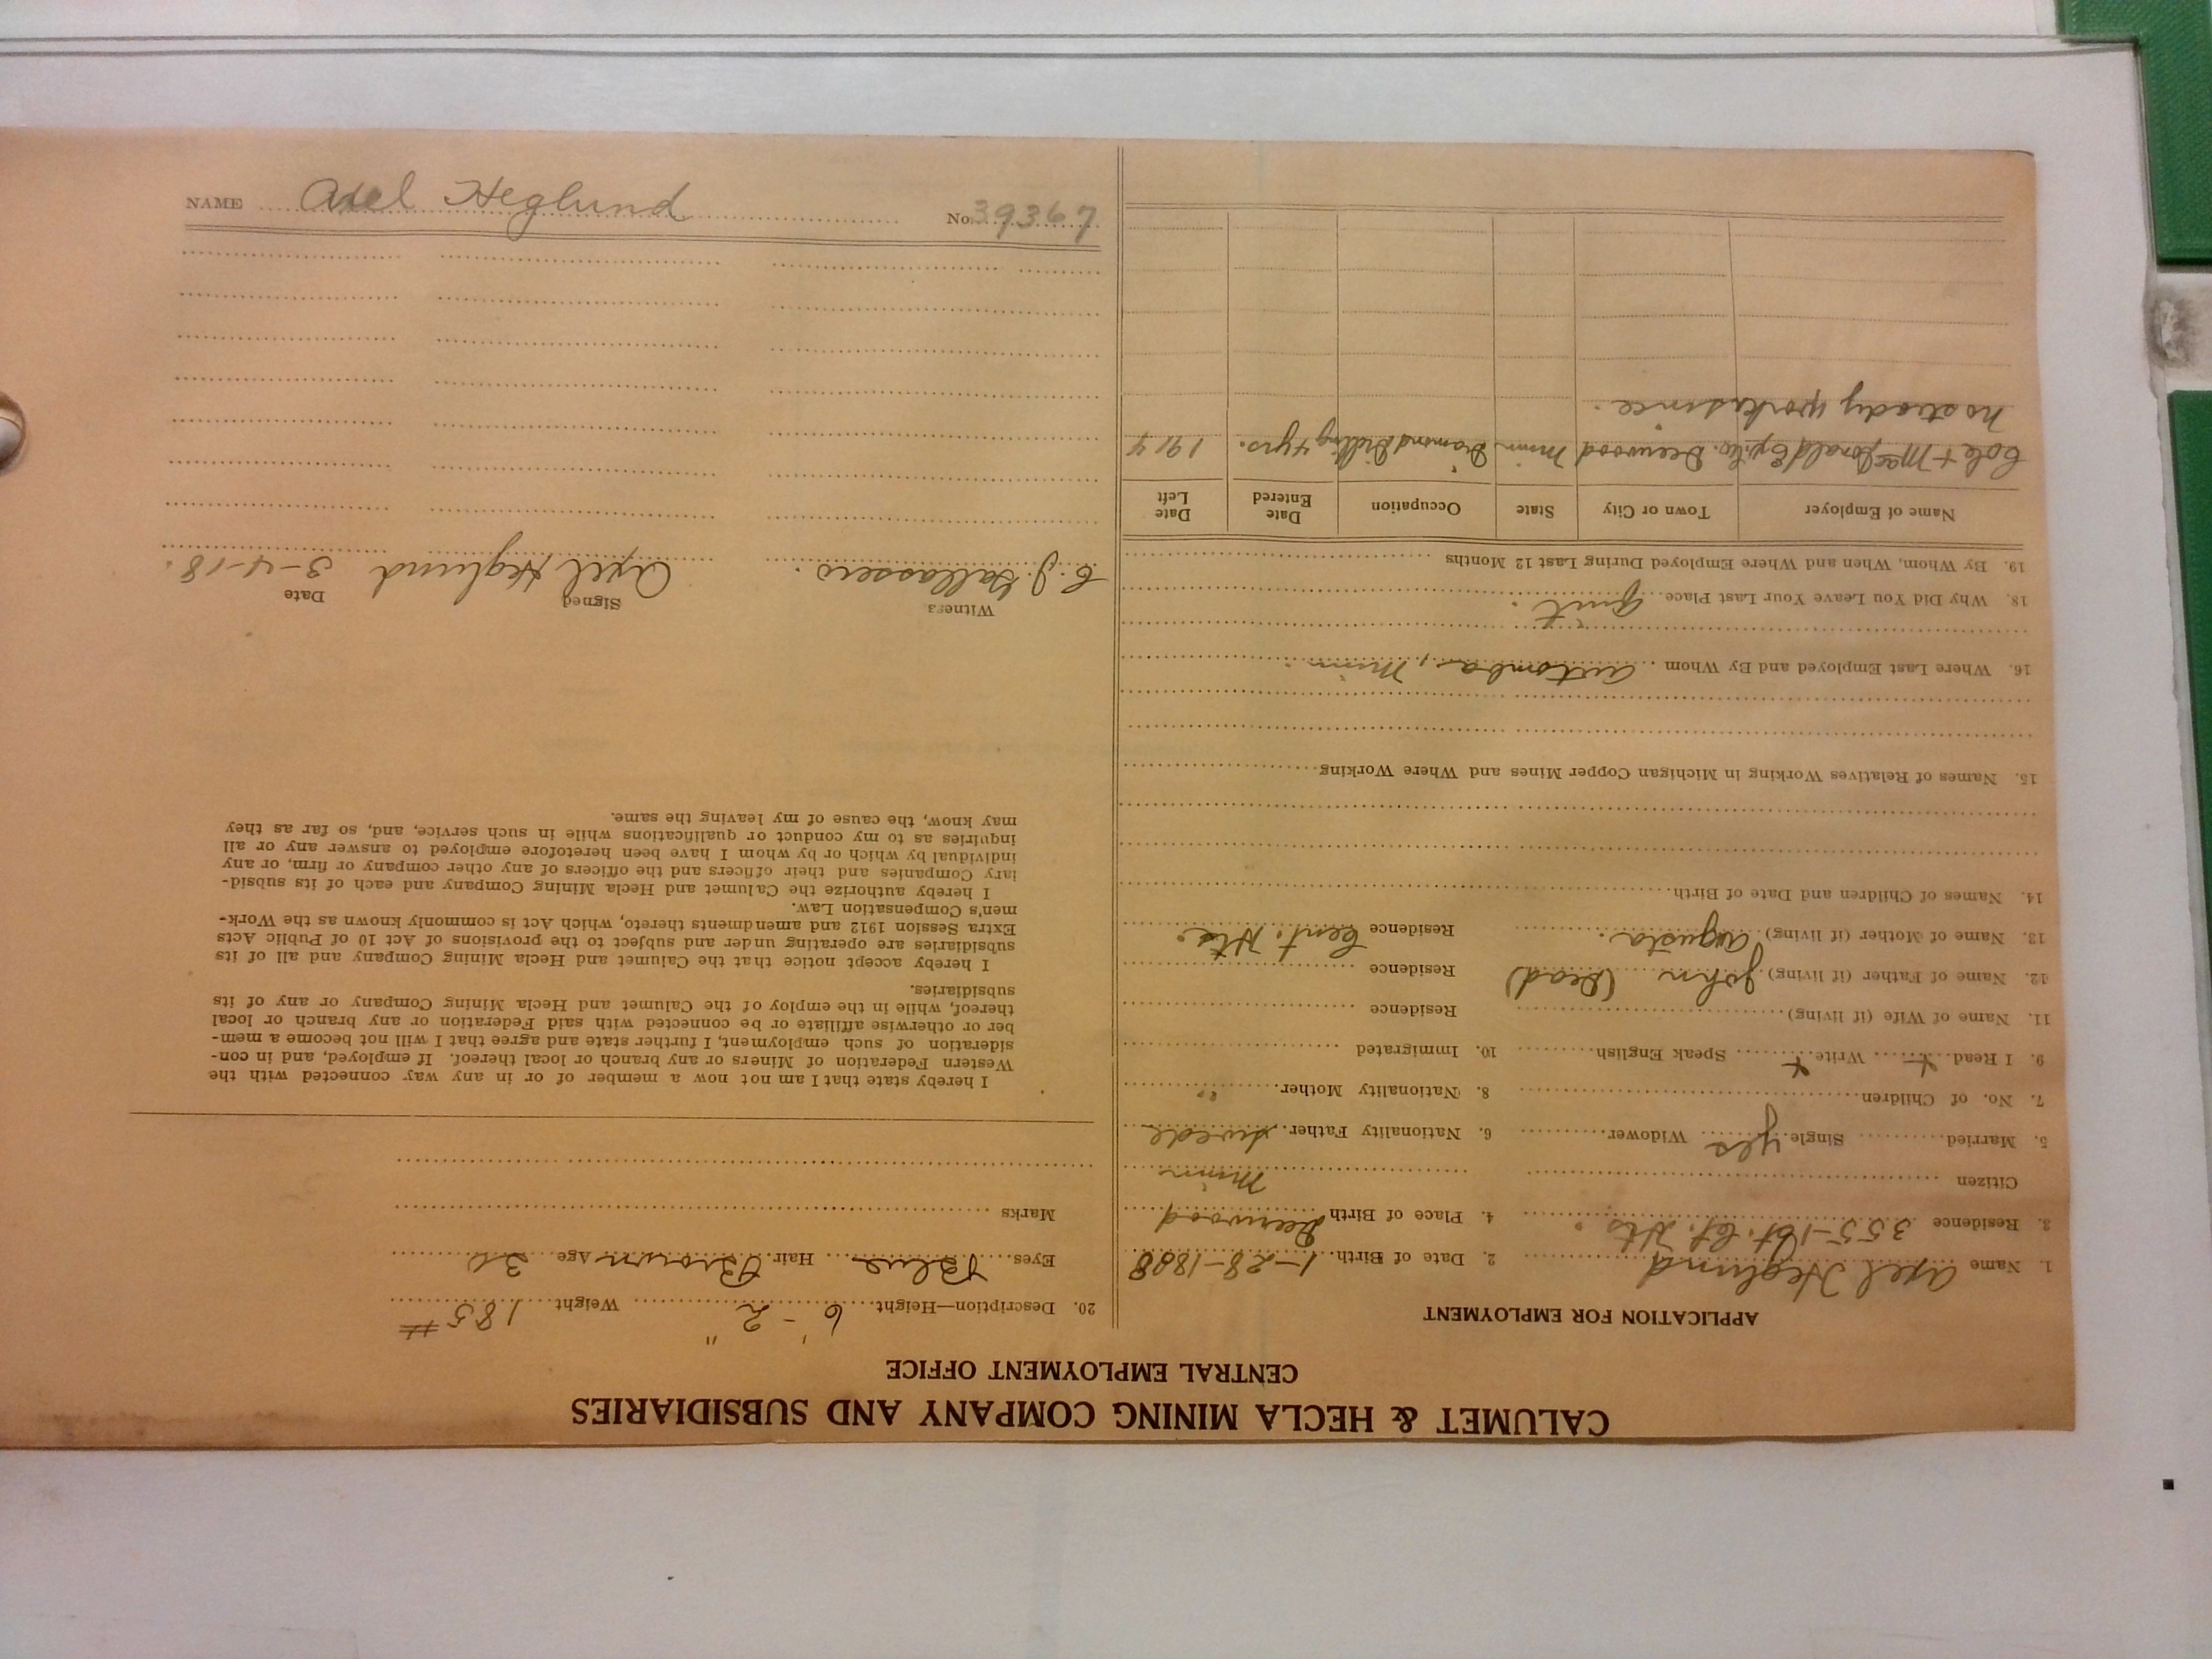 CALUMET & HECLA MINING COMPANY AND SUBSIDIARIES
CENTRAL EMPLOYMENT OFFICE
APPLICATION FOR EMPLOYMENT
1. Name Axel Heglund 2. Date of Birth 1-28-1888
3. Residence 355-1st. St. Hts. 4. Place of Birth Deerwood
Citizen Minn
5. Married Single yes Widower 6. Nationality Father Swede
7. No. of Children 8. Nationality Mother "
9. I Read x Write x Speak English 10. Immigrated
11. Name of Wife (if living) Residence
12. Name of Father (if living) John (Dead) Residence
13. Name of Mother (if living) Augusta. Residence Cent. Hts.
14. Names of Children and Date of Birth
15. Names of Relatives Working in Michigan Copper Mines and Where Working
16. Where Last Employed and By Whom Automba, Minn.
18. Why Did You Leave Your Last Place Quit.
19. By Whom, When and Where Employed During Last 12 Months
Name of Employer Town or City State Occupation Date Entered Date Left
Cole + MacDonald Ex. Co. Deerwood Minn Diamond Drilling 4 yrs. 1914
No steady work since.
20. Description—Height 6'-2" Weight 185#
Eyes Blue Hair Brown Age 30
Marks
I hereby state that I am not now a member of or in any way connected with the
Western Federation of Miners or any branch or local thereof. If employed, and in con-
sideration of such employment, I further state and agree that I will not become a mem-
ber or otherwise affiliate or be connected with said Federation or any branch or local
thereof, while in the employ of the Calumet and Hecla Mining Company or any of its
subsidiaries.
I hereby accept notice that the Calumet and Hecla Mining Company and all of its
subsidiaries are operating under and subject to the provisions of Act 10 of Public Acts
Extra Session 1912 and amendments thereto, which Act is commonly known as the Work-
men's Compensation Law.
I hereby authorize the Calumet and Hecla Mining Company and each of its subsid-
iary Companies and their officers and the officers of any other company or firm, or any
individual by which or by whom I have been heretofore employed to answer any or all
inquiries as to my conduct or qualifications while in such service, and, so far as they
may know, the cause of my leaving the same.
Witness Signed Date
C. J. Gallassero. Axel Heglund 3-4-18.
NAME Axel Heglund No. 39367